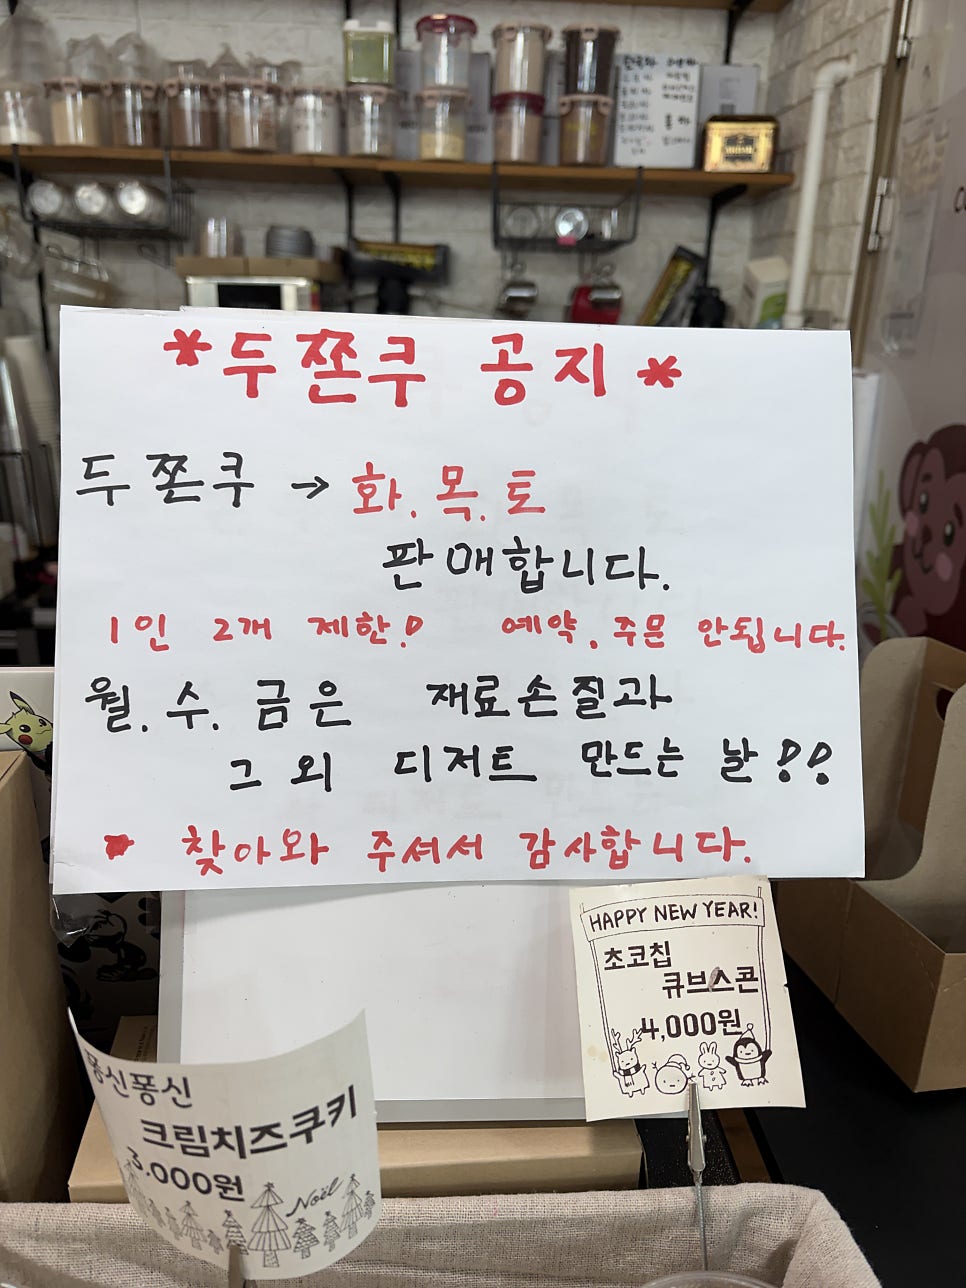 *두쫀쿠 공지*
두쫀쿠 → 화.목.토
판매합니다.
1인 2개 제한! 예약, 주문 안됩니다.
월.수.금은 재료손질과
그 외 디저트 만드는 날!!
찾아와 주셔서 감사합니다.
HAPPY NEW YEAR!
초코칩
큐브스콘
4,000원
퐁신퐁신
크림치즈쿠키
3.000원
Noël